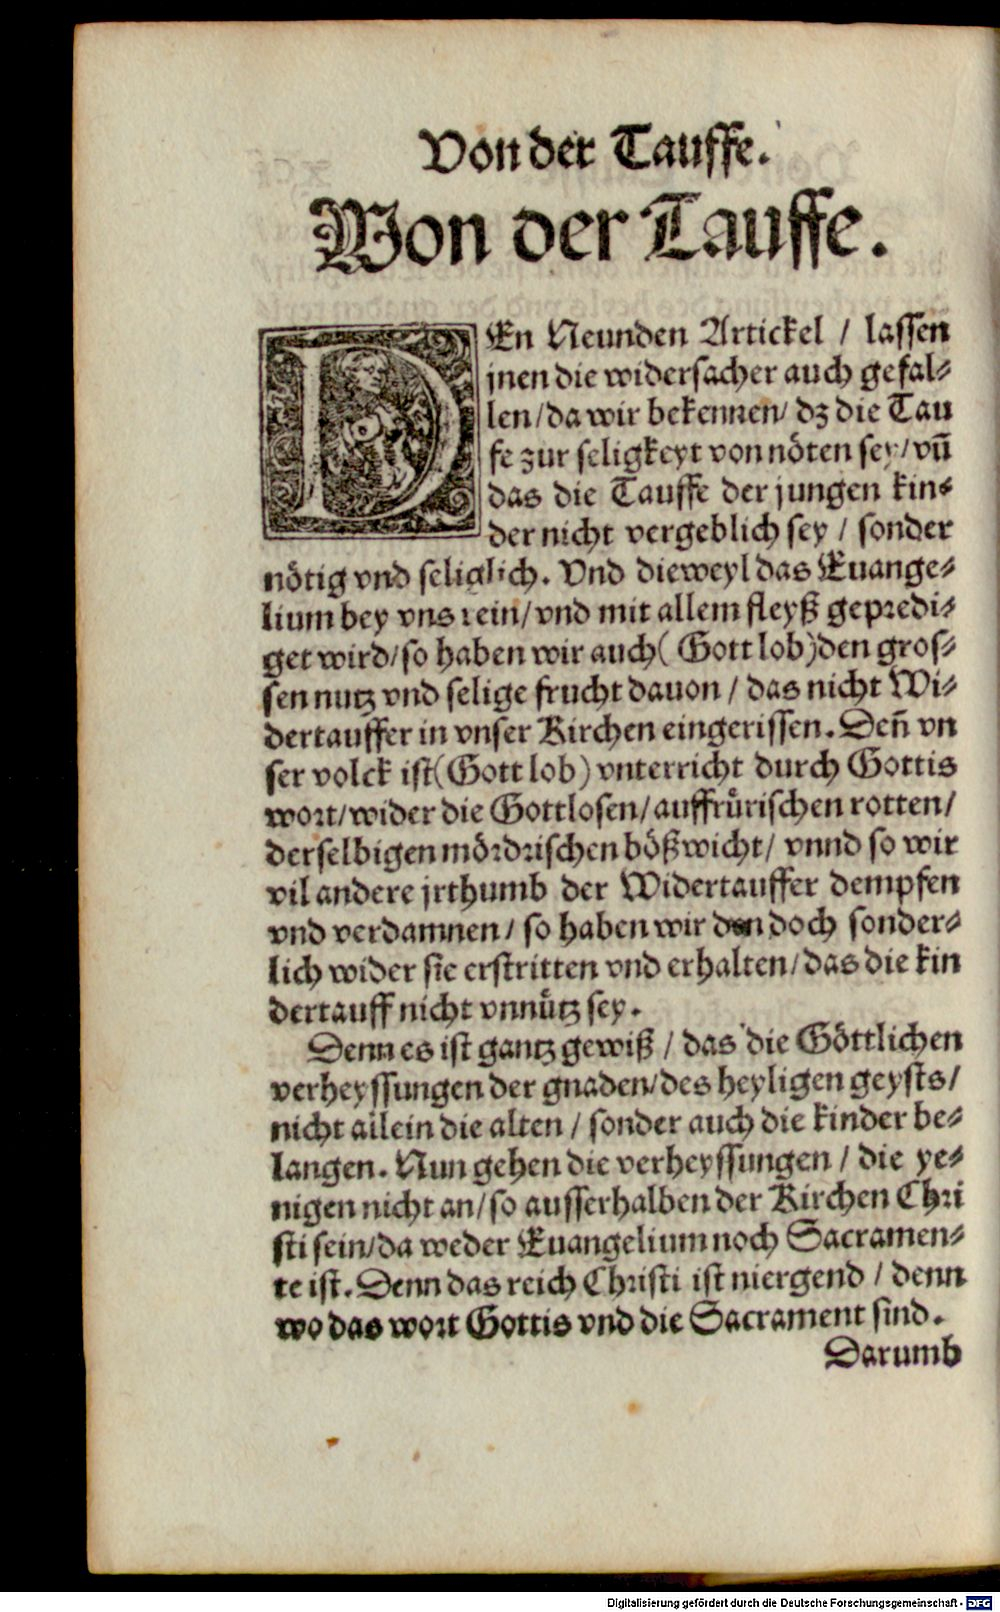 Von der Tauffe.
Von der Tauffe.
DEn Neunden Artickel / lassen
jnen die widersacher auch gefal⸗
len / da wir bekennen / dz die Tau
fe zur seligkeyt von nöten sey / vñ
das die Tauffe der jungen kin⸗
der nicht vergeblich sey / sonder
nötig vnd seliglich. Vnd dieweyl das Euange⸗
lium bey vns rein / vnd mit allem fleyß gepredi⸗
get wird / so haben wir auch ( Gott lob ) den gros⸗
sen nutz vnd selige frucht dauon / das nicht Wi⸗
dertauffer in vnser Kirchen eingerissen. Deñ vn
ser volck ist ( Gott lob ) vnterricht durch Gottis
wort / wider die Gottlosen / auffrůrischen rotten /
derselbigen mördrischen bößwicht / vnnd so wir
vil andere jrthumb der Widertauffer dempfen
vnd verdamnen / so haben wir den doch sonder⸗
lich wider sie erstritten vnd erhalten / das die kin
dertauff nicht vnnůtz sey.
Denn es ist gantz gewiß / das die Göttlichen
verheyssungen der gnaden / des heyligen geysts /
nicht allein die alten / sonder auch die kinder be⸗
langen. Nun gehen die verheyssungen / die ye⸗
nigen nicht an / so ausserhalben der Kirchen Chri
sti sein / da weder Euangelium noch Sacramen⸗
te ist. Denn das reich Christi ist niergend / denn
wo das wort Gottis vnd die Sacrament sind.
Darumb
Digitalisierung gefördert durch die Deutsche Forschungsgemeinschaft - DFG